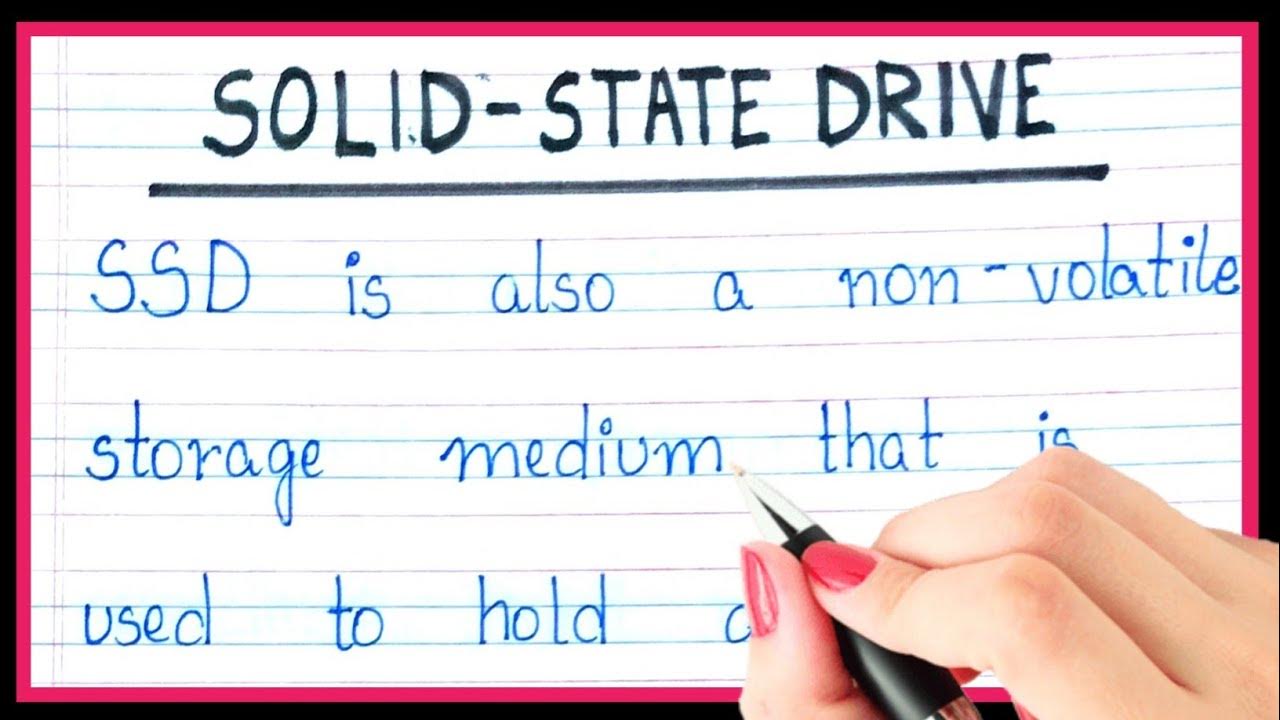 SOLID-STATE DRIVE
SSD is also a non-volatile
storage medium that is
used to hold